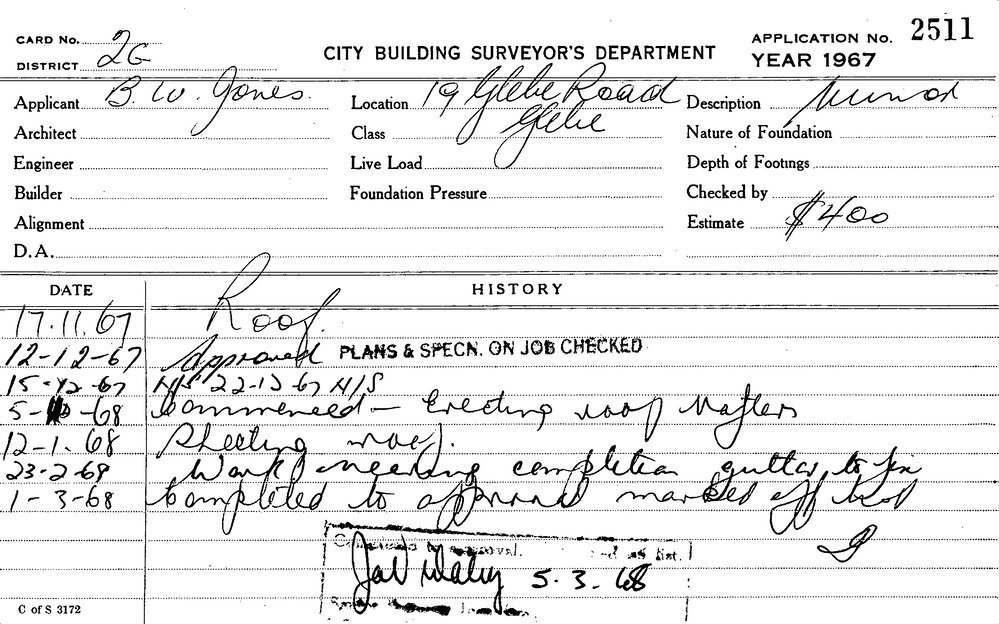 CARD No. 2G
DISTRICT
CITY BUILDING SURVEYOR'S DEPARTMENT
APPLICATION No. 2511
YEAR 1967
Applicant B. W. Jones.
Location 19 Glebe Road
Glebe
Description Minor
Architect
Class
Nature of Foundation
Engineer
Live Load
Depth of Footings
Builder
Foundation Pressure
Checked by
Alignment
Estimate $400
D.A.
DATE HISTORY
17.11.67 Roof.
12-12-67 Approved PLANS & SPECN. ON JOB CHECKED
15-12-67 N/S 22-12-67 N/S
5- -68 Commenced - Erecting roof rafters
12-1-68 Sheeting roof.
23-2-68 Work nearing completion gutter to fix
1-3-68 Completed to approval marked off list
approval. as list.
5.3.68
C of S 3172